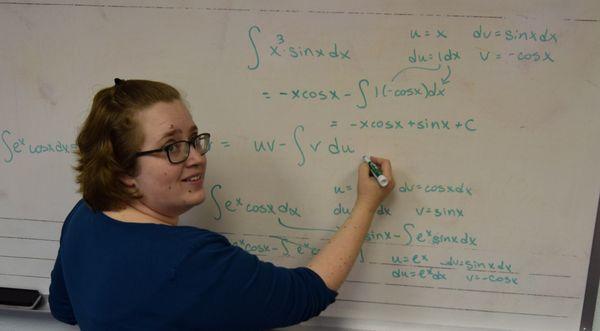 ∫ x³·sinx dx u = x dv = sinxdx
du = 1dx v = -cosx
= -xcosx - ∫ 1(-cosx)dx
= -xcosx + sinx + C
∫eˣ cosxdx = = uv - ∫ v du
∫eˣ cosx dx u = dv = cosxdx
du dx v = sinx
sinx - ∫eˣ sinxdx
eˣcosx - ∫ eˣ u = eˣ dv = sinxdx
du = eˣdx v = -cosx